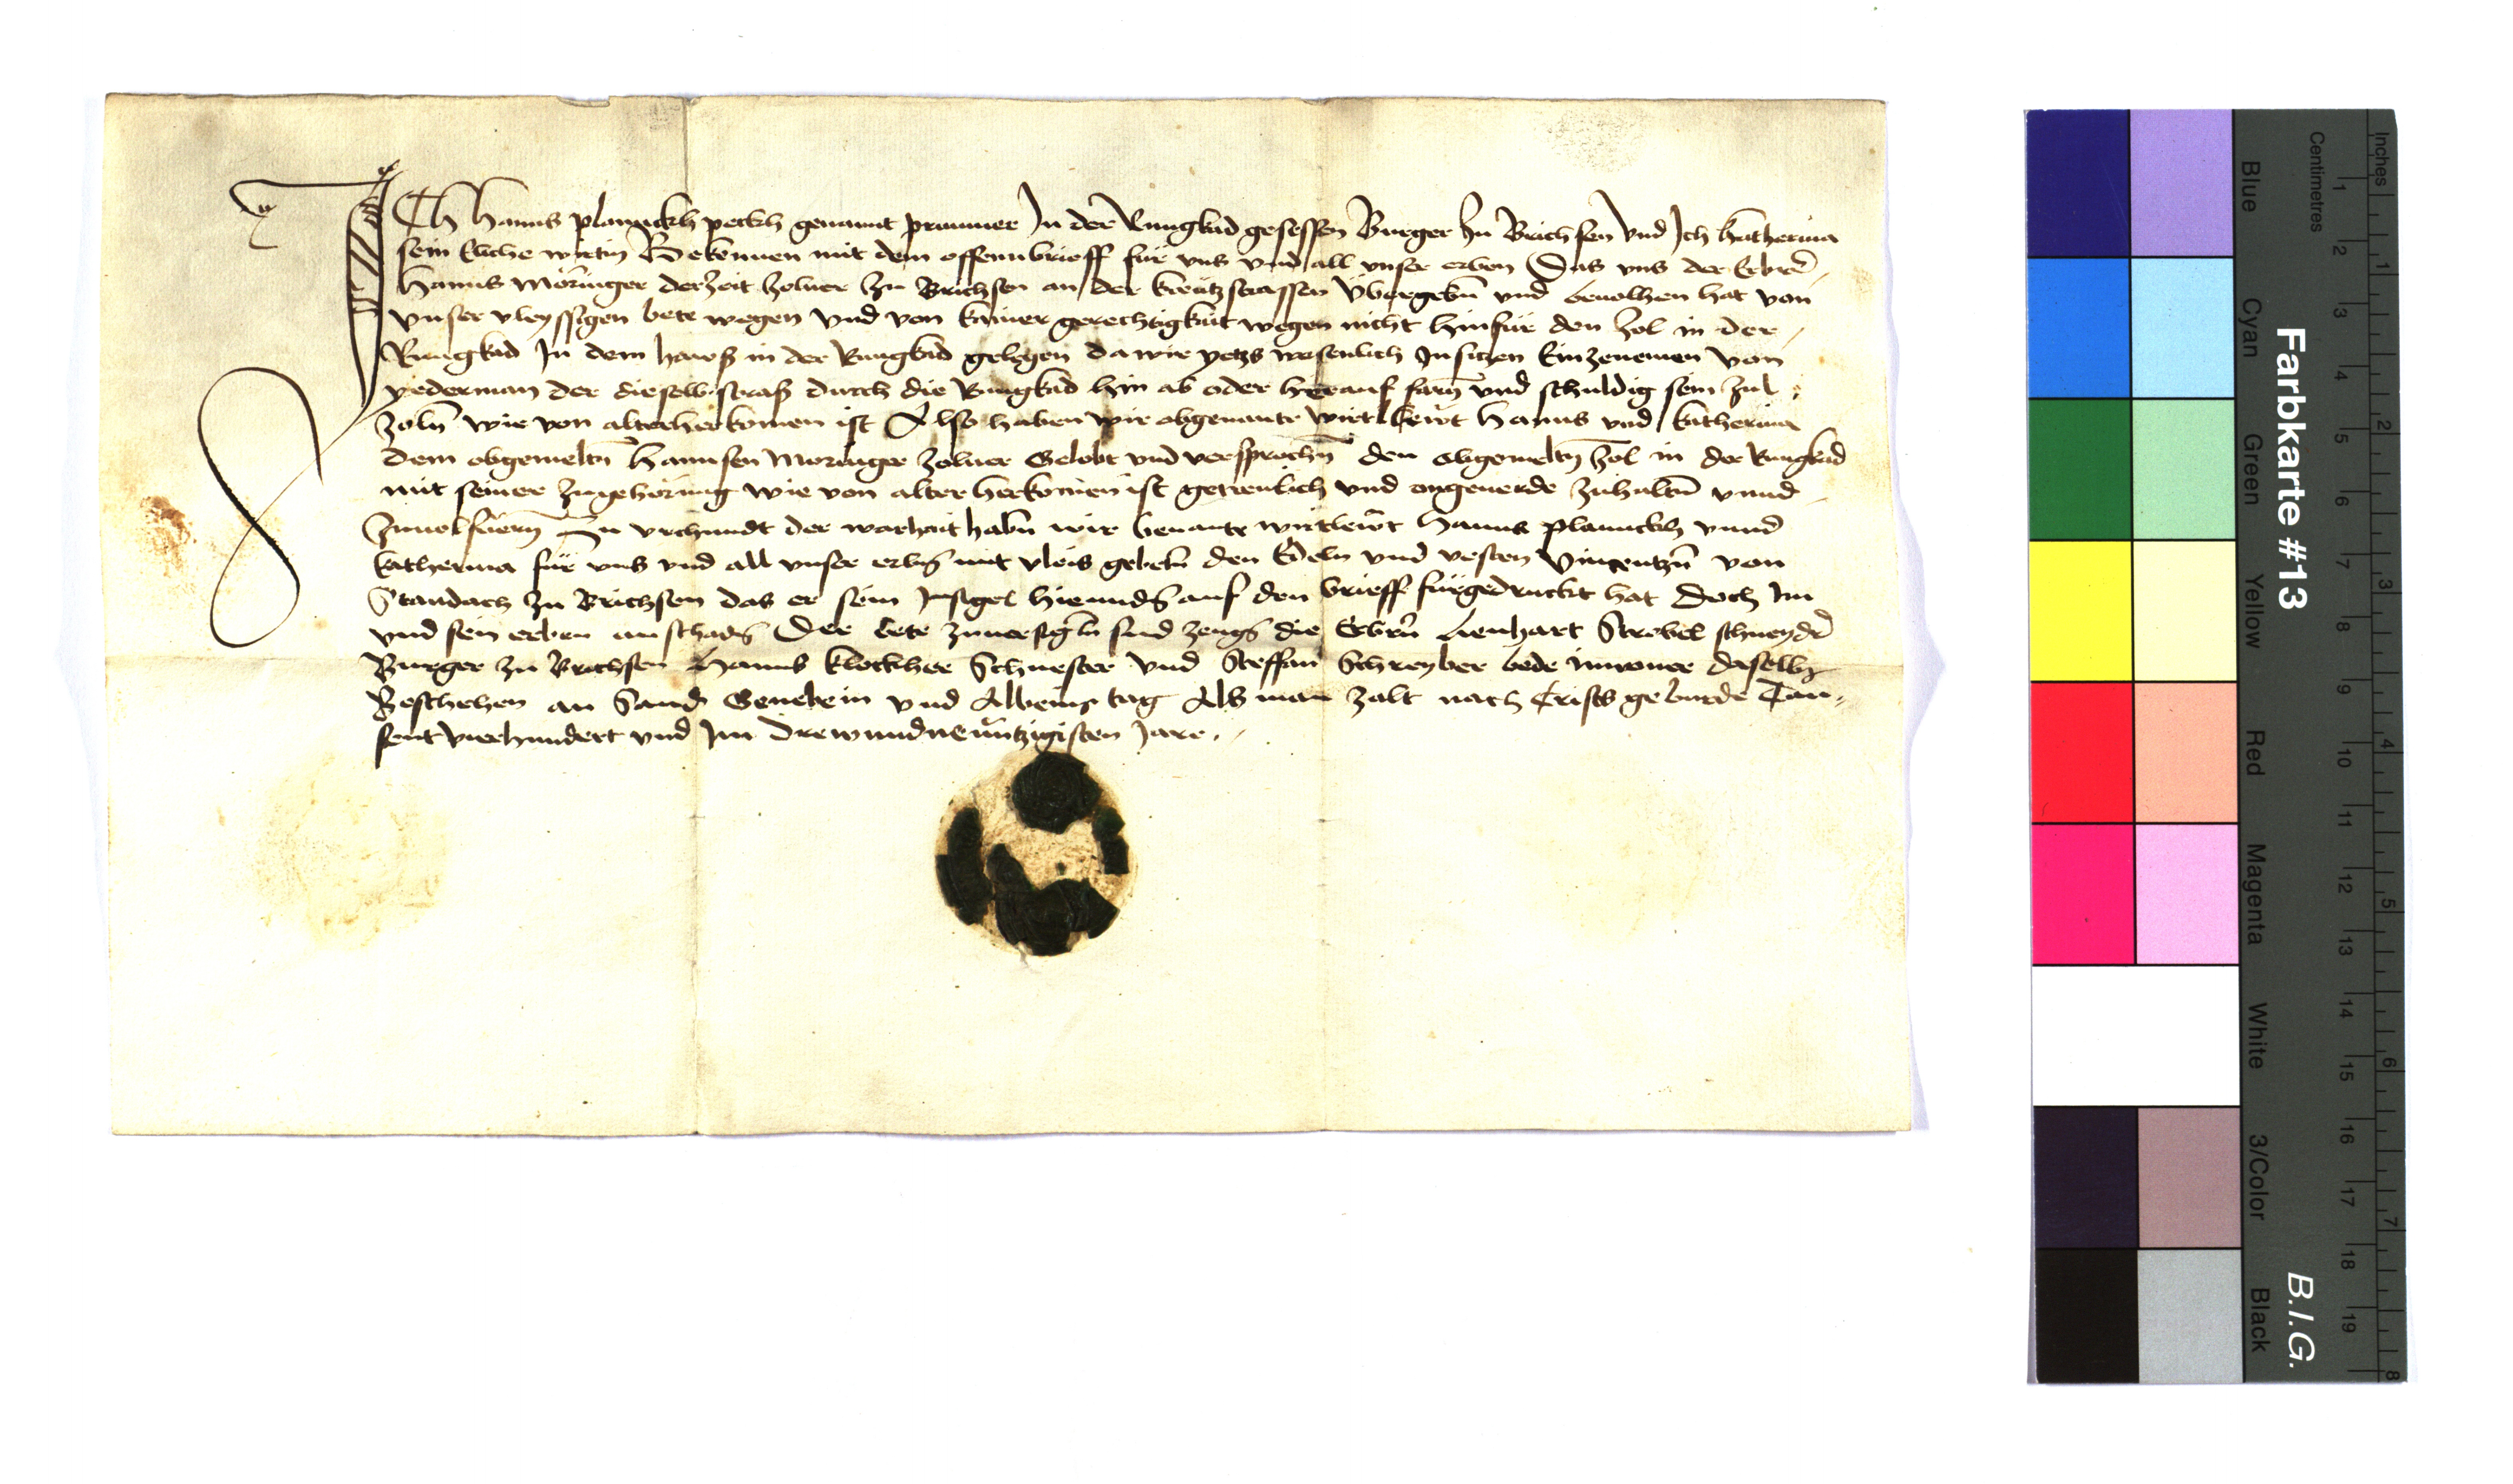 Ich Hanns plannckh peckh genannt prunner In der Rungkad gesessen Burger zu Brichsen vnd Ich Katherina
sein Eliche wirtin Bekennen mit dem offenn brieff für vns vnd all vnser erben Das vns der Erbrē
Hanns Moringer derzeit zolner zu Brichsen an der kreützstrassen Übergebn̄ vnd beuolhen hat von
vnser vleyssigen bete wegen vnd von kainer gerechtigkait wegen nicht hinfür den zol in der
Rungkad In dem hawß in der Rungkad gelegen da wir yetzs wesenlich In sitzen Einzenemen von
yederman der dieselb straß durch die Rungkad hin ab oder herauf farn̄ vnd schuldig sein zuł
zoln̄ wie von alterherkomen ist Also haben wir obgenante wirtlewt Hanns vnd Katherina
dem obgemeltn̄ Hannsen Moringer zolner Gelobt vnd versprochn̄ den obgemeltn̄ zol in der Rungkad
mit seiner zugehörung wie von alter herkomen ist getreulich vnd ongeuerde zuhaltn̄ vnnd
zuuolfüern̄ Zu vrchundt der warhait habn̄ wir benante wirtlewt Hanns planckh vnnd
Katherina für vns vnd all vnser erbn̄ mit vleis gebetn̄ den Edeln vnd vesten Vincentzn̄ von
Standach zu Brichsen das er sein Insigel hieunden̄ auf den brieff fürgedruckt hat Doch Im
vnd sein erben an schadn̄ Der bete zuuersigln̄ sind zeugn̄ die Erbrn̄ Lienhart Strobel schneydr̄
Burger zu Brichsen Hanns Klockher Schuester vnd Steffan Schreyber bede inwoner daselbs
Beschehen an Sand Genebein vnd Albeins tag Als man zalt nach Crists geburde Tau
sent vierhundert vnd Im Drewundneüntzigisten Jare.
Farbkarte #13
B.I.G.
Inches
Centimetres
Blue
Cyan
Green
Yellow
Red
Magenta
White
3/Color
Black
1 2 3 4 5 6 7 8 9 10 11 12 13 14 15 16 17 18 19
1 2 3 4 5 6 7 8